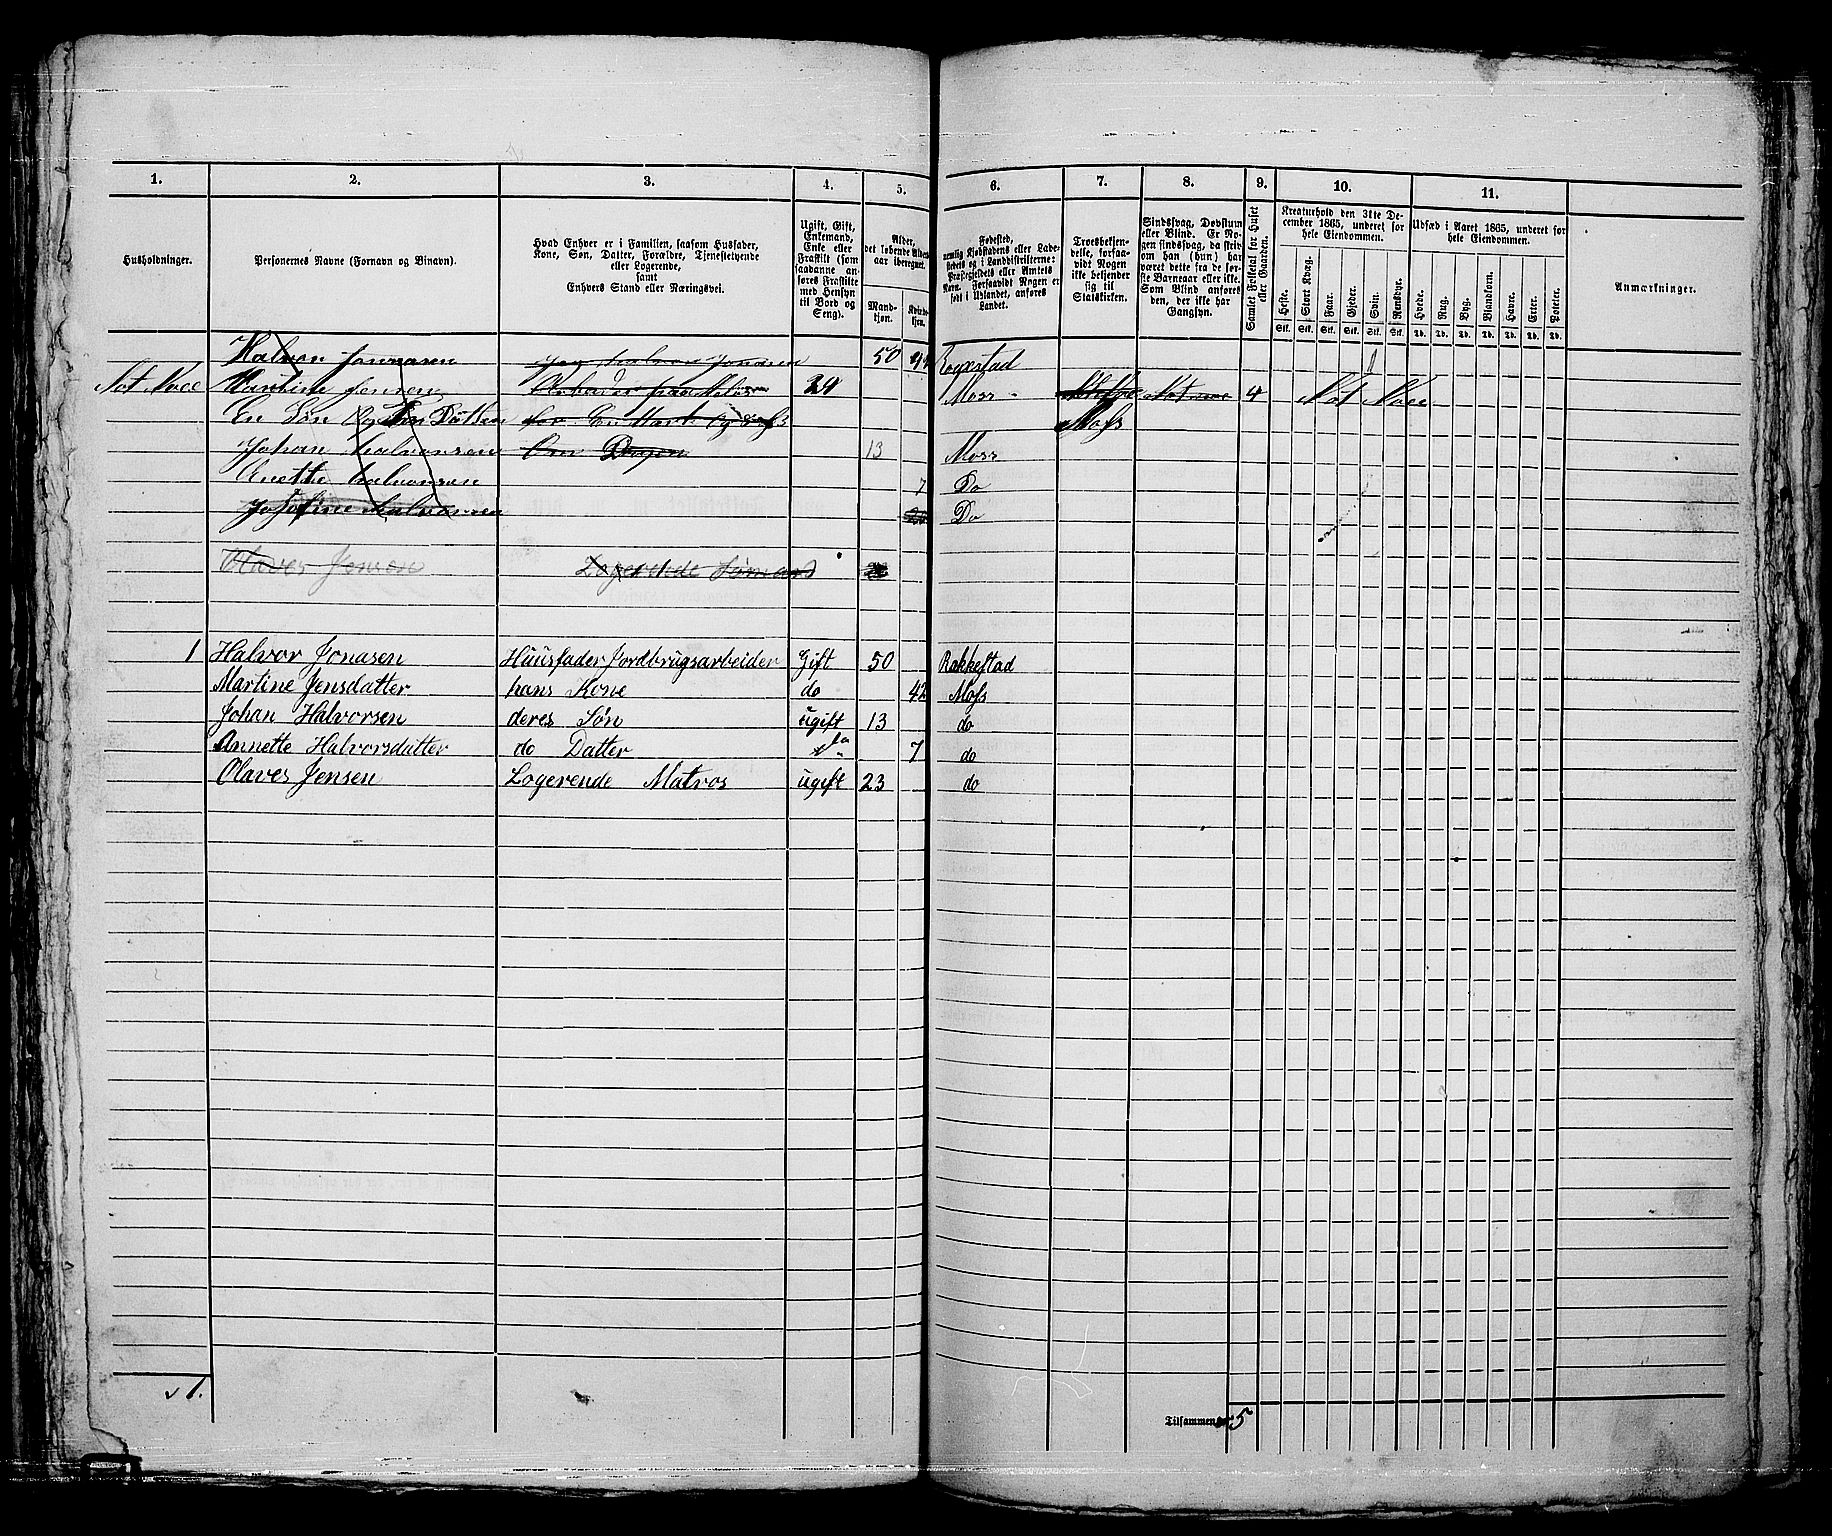 1. 2. 3. 4. 5. 6. 7. 8. 9. 10. 11.
Husholdninger.
Personernes Navne (Fornavn og Binavn).
Hvad Enhver er i Familien, saasom Husfader,
Kone, Søn, Datter, Forældre, Tjenestetyende
eller Logerende,
samt
Enhvers Stand eller Næringsvei.
Ugift, Gift,
Enkemand,
Enke eller
Fraskilt (som
saadanne an-
føres Fraskilte
med Hensyn
til Bord og
Seng).
Alder,
det løbende Alders-
aar iberegnet.
Mand-
kjøn.
Kvinde-
kjøn.
Fødested,
nemlig Kjøbstadens eller Lade-
stedets og i Landdistrikterne:
Præstegjeldets eller Amtets
Navn. Forsaavidt Nogen er
født i Udlandet, anføres
Landet.
Troesbekjen-
delse, forsaa-
vidt Nogen
ikke bekjender
sig til
Statskirken.
Sindssvag, Døvstum
eller Blind. Er No-
gen sindssvag, da skriv
om han (hun) har
været dette fra de før-
ste Barneaar eller ikke.
Som Blind anføres
den, der ikke har
Gangsyn.
Samlet Folketal for Huset
eller Gaarden.
Kreaturhold den 31te De-
cember 1865, underet for
hele Eiendommen.
Heste. Stort Kvæg. Faar. Gjeder. Svin. Rensdyr.
Stk. Stk. Stk. Stk. Stk. Stk.
Udsæd i Aaret 1865, underet for
hele Eiendommen.
Hvede. Rug. Byg. Blandkorn. Havre. Erter. Poteter.
Td. Td. Td. Td. Td. Td. Td.
Anmærkninger.
Halvor Jonnasen 50
Martine Jensen 24 Moss 4
En Søn Døtter Moss
Johan Halvorsen 13 Moss
Enette Halvorsen 7 Do
Josefine Halvorsen Do
Olaves Jensen Logerende Sømand
1 Halvor Jonasen Huusfader Jordbrugsarbeider Gift 50 Rakkestad
Martine Jensdatter hans Kone do 42 Moss
Johan Halvorsen deres Søn ugift 13 do
Annette Halvorsdatter do Datter do 7 do
Olaves Jensen Logerende Matros ugift 23 do
1.
Tilsammen 5